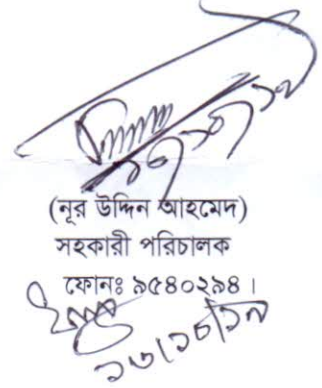 (নূর উদ্দিন আহমেদ)
সহকারী পরিচালক
ফোনঃ ৯৫৪০২৯৪।